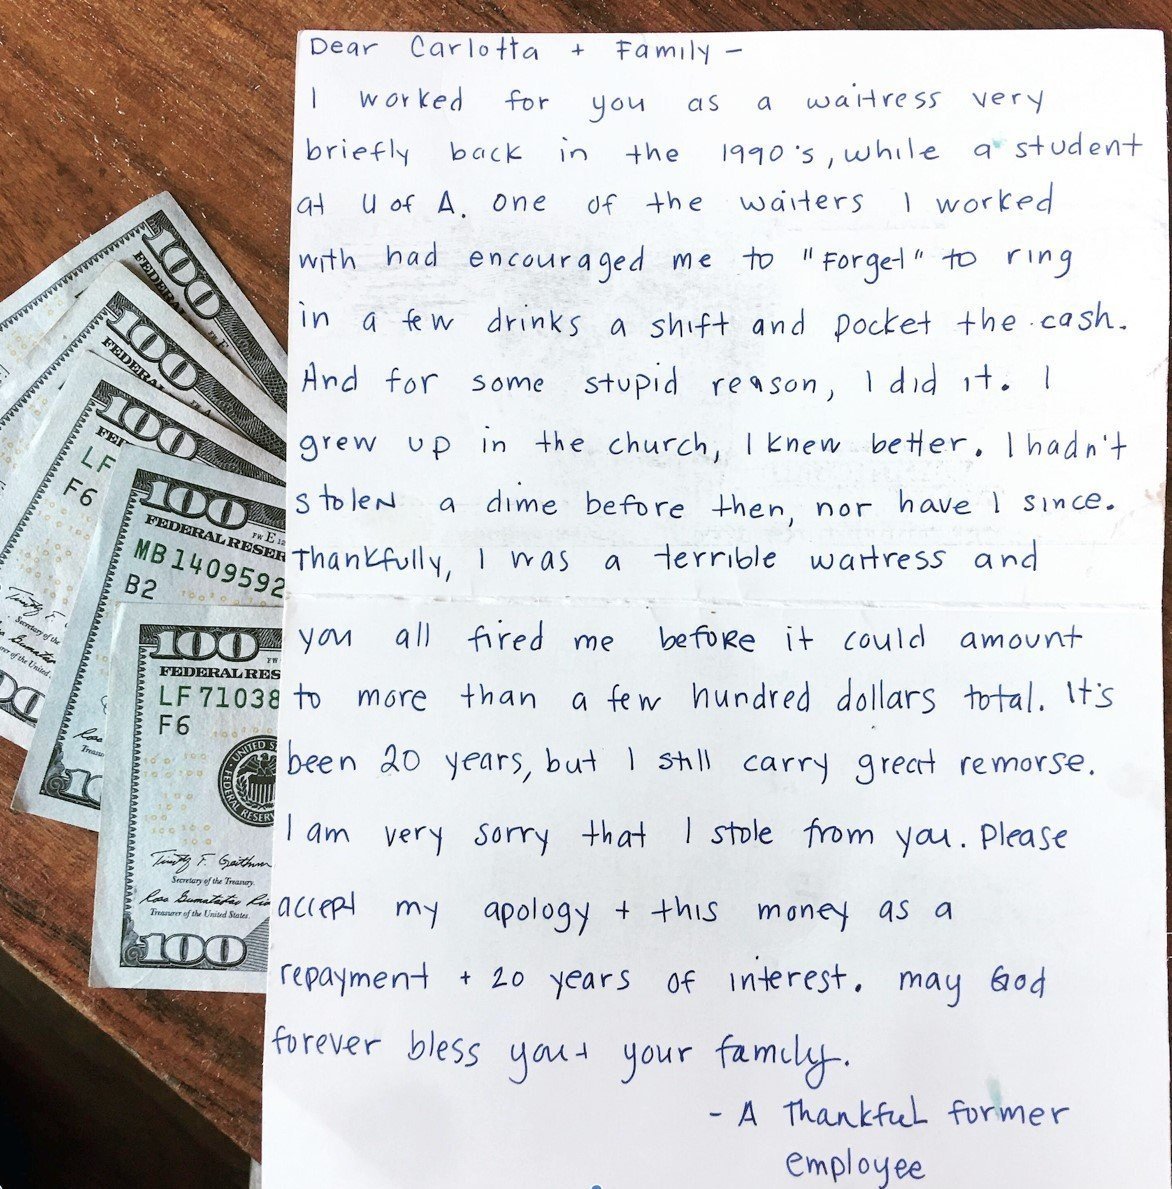 Dear Carlotta + Family -
I worked for you as a waitress very
briefly back in the 1990's, while a student
at U of A. One of the waiters I worked
with had encouraged me to "Forget" to ring
in a few drinks a shift and pocket the cash.
And for some stupid reason, I did it. I
grew up in the church, I knew better. I hadn't
stolen a dime before then, nor have I since.
Thankfully, I was a terrible waitress and
you all fired me before it could amount
to more than a few hundred dollars total. It's
been 20 years, but I still carry great remorse.
I am very sorry that I stole from you. Please
accept my apology + this money as a
repayment + 20 years of interest. May God
forever bless you + your family.
- A Thankful former
employee
100
FEDERAL
100
FEDERAL
100
LF
F6
100
FEDERAL RESER
MB1409592
B2
100
FEDERAL RES
LF71038
F6
UNITED S
FEDERAL RESER
Timothy F. Geithner
Secretary of the Treasury.
Treasurer of the United States.
100
Secretary of the